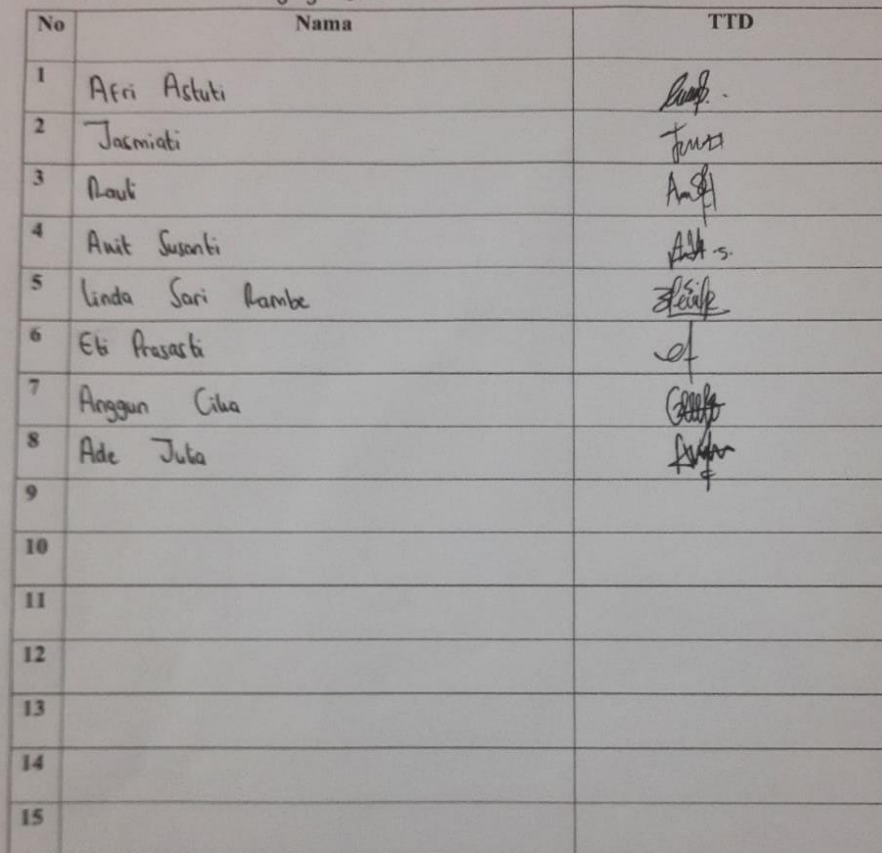 No Nama TTD
1 Afri Astuti
2 Jasmiati
3 Rauli
4 Anit Susanti
5 Linda Sari Rambe
6 Eti Prasasti
7 Anggun Cika
8 Ade Juta
9
10
11
12
13
14
15